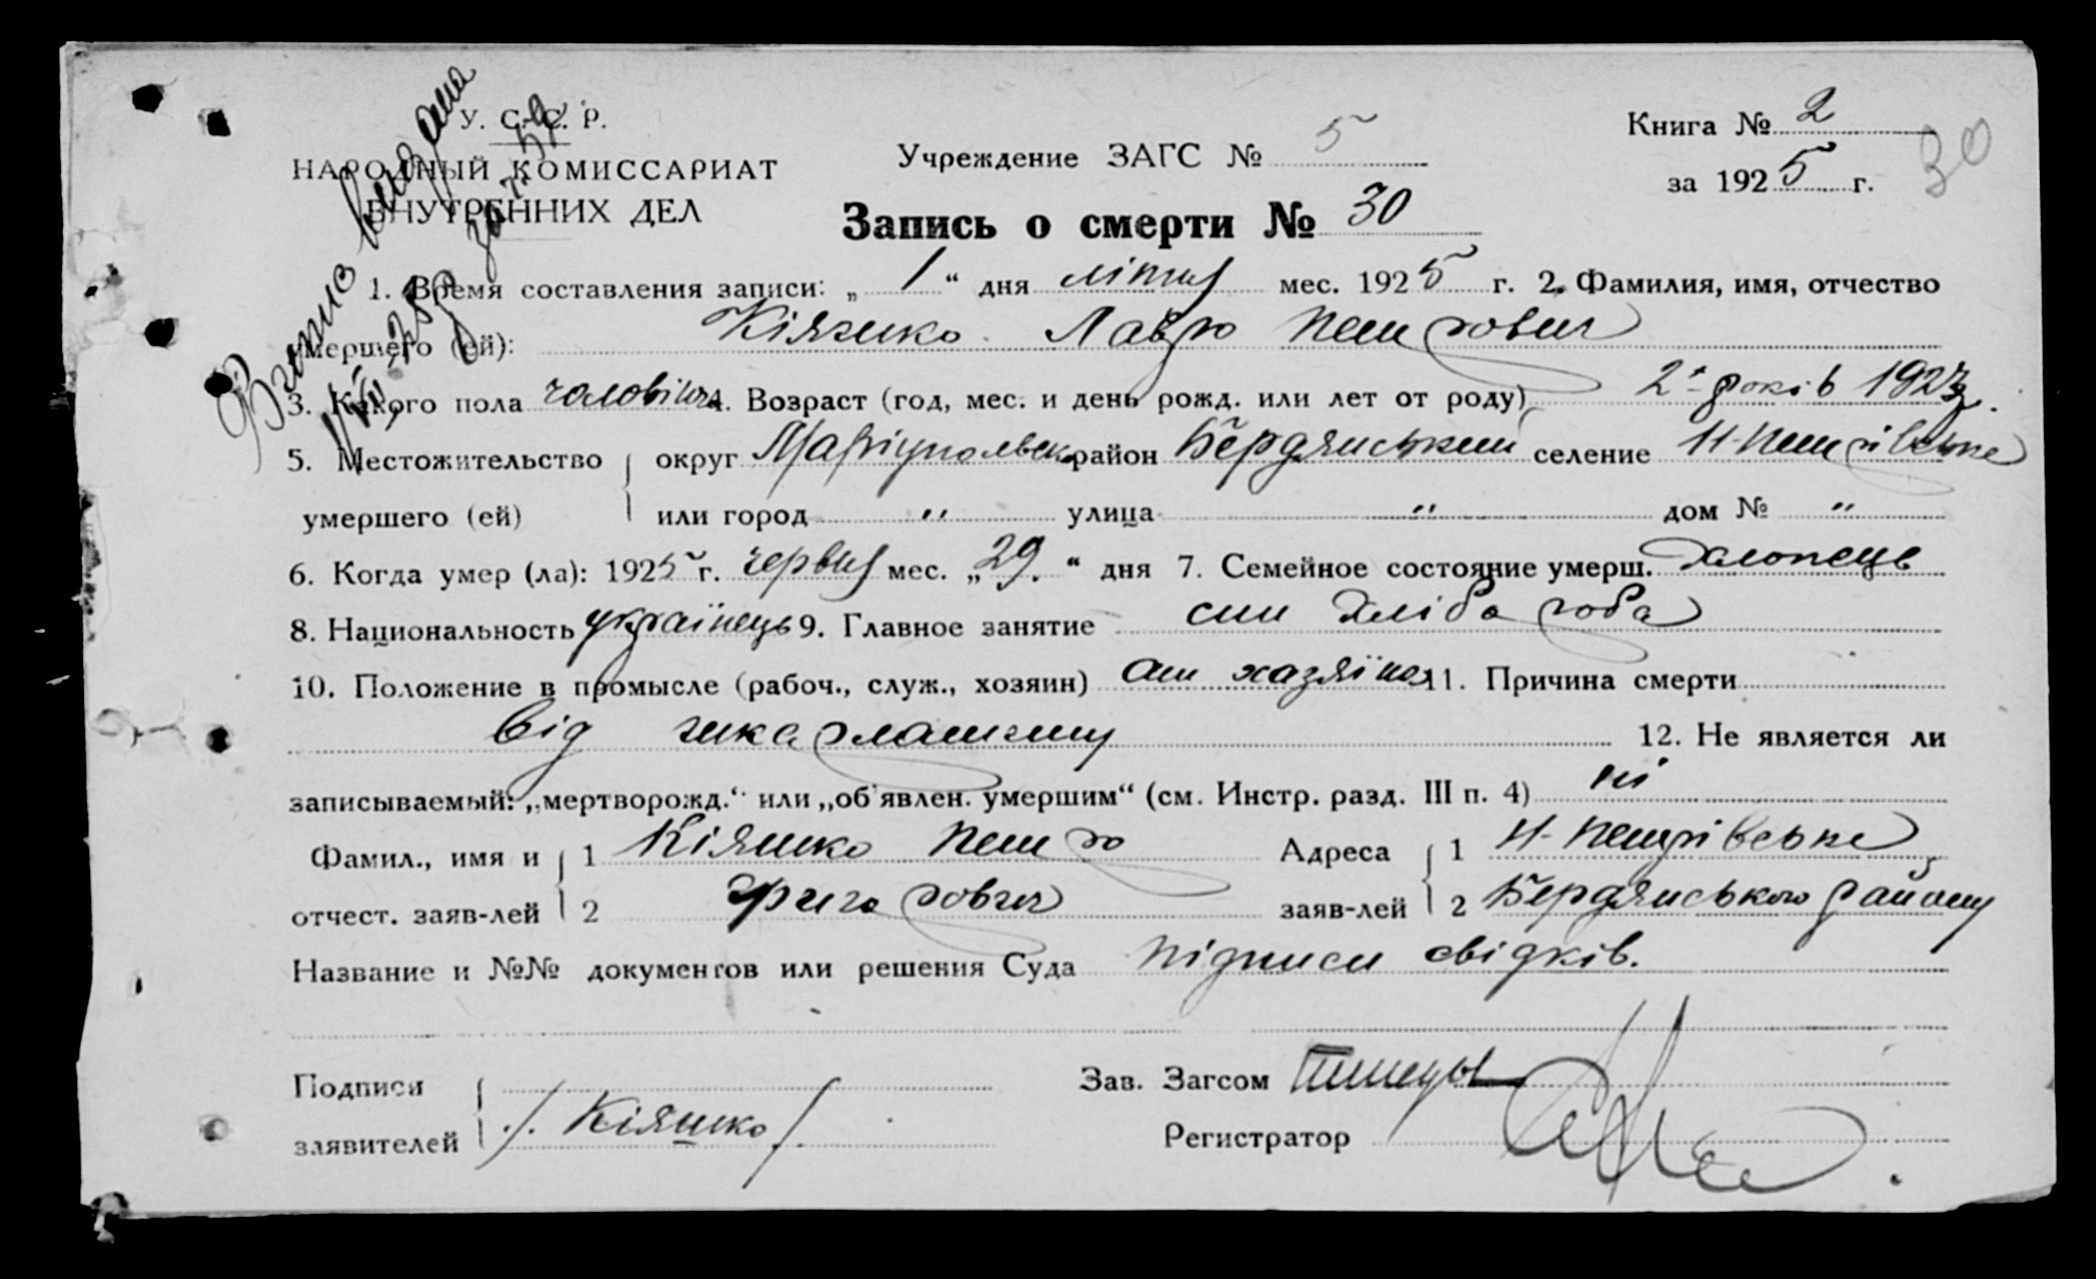 У. С. С. Р.
НАРОДНЫЙ КОМИССАРИАТ
ВНУТРЕННИХ ДЕЛ
Учреждение ЗАГС № 5
Книга № 2
за 1925 г.
30
Запись о смерти № 30
1. Время составления записи: „ 1 “ дня літня мес. 1925 г. 2. Фамилия, имя, отчество
умершего (ей): Кіяшко Лавро Петрович
3. Какого пола чоловіча 4. Возраст (год, мес. и день рожд. или лет от роду) 2 років 1923
5. Местожительство округ Маріупольськ район Бердянський селение Н-Петрівське
умершего (ей) или город " улица " дом № "
6. Когда умер (ла): 1925 г. червня мес. „ 29. “ дня 7. Семейное состояние умерш. Хлопець
8. Национальность українець 9. Главное занятие син хлібороба
10. Положение в промысле (рабоч., служ., хозяин) син хазяїна 11. Причина смерти
від 12. Не является ли
записываемый: „мертворожд.“ или „об'явлен. умершим“ (см. Инстр. разд. III п. 4) ні
Фамил., имя и 1 Кіяшко Петро Адреса 1 Н-Петрівське
отчест. заяв-лей 2 Григорович заяв-лей 2 Бердянського району
Название и №№ документов или решения Суда підписи свідків.
Подписи Зав. Загсом
заявителей /. Кіяшко / Регистратор